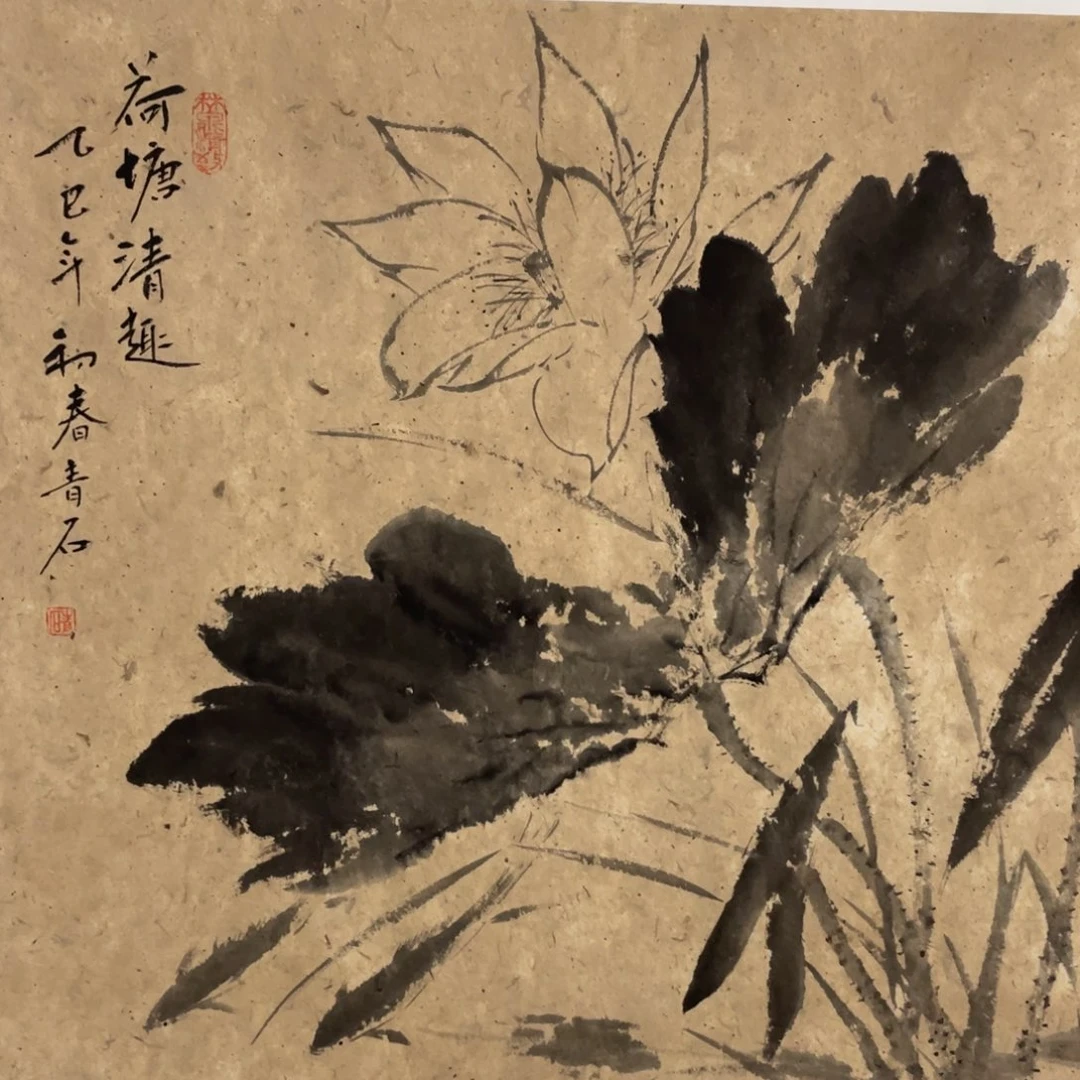 荷塘清趣
乙巳年初春青石